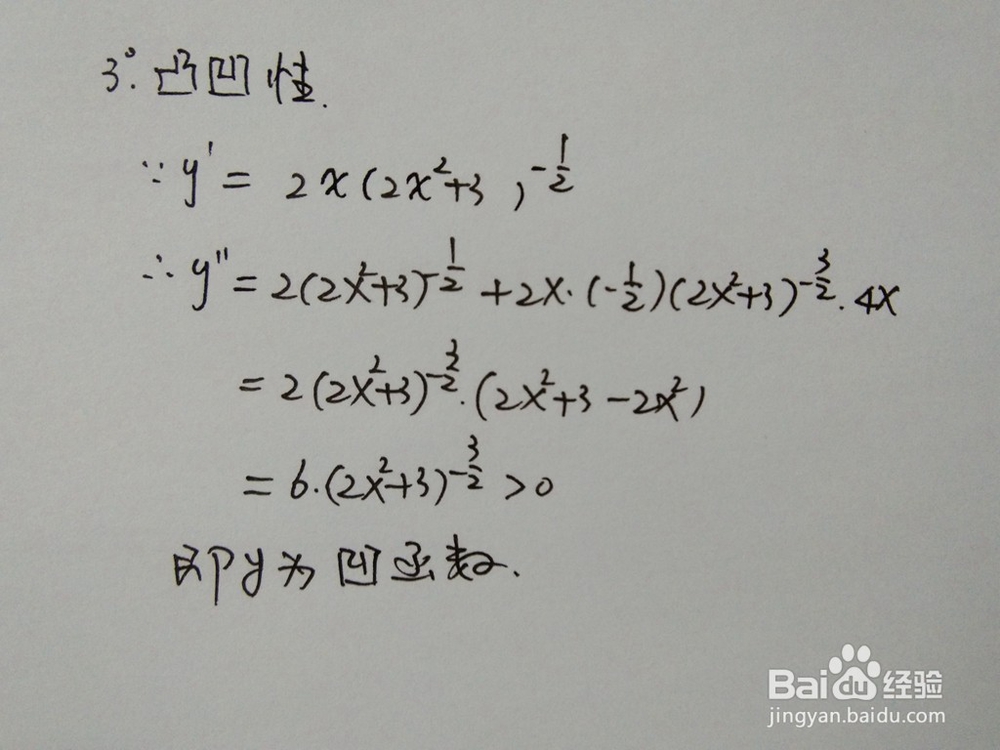 3°. 凸凹性.
∵ y' = 2x(2x²+3)^{-1/2}
∴ y'' = 2(2x²+3)^{-1/2} + 2x·(-1/2)(2x²+3)^{-3/2}·4x
= 2(2x²+3)^{-3/2}·(2x²+3-2x²)
= 6·(2x²+3)^{-3/2} >0
即y为凹函数.
Baidu 经验
jingyan.baidu.com